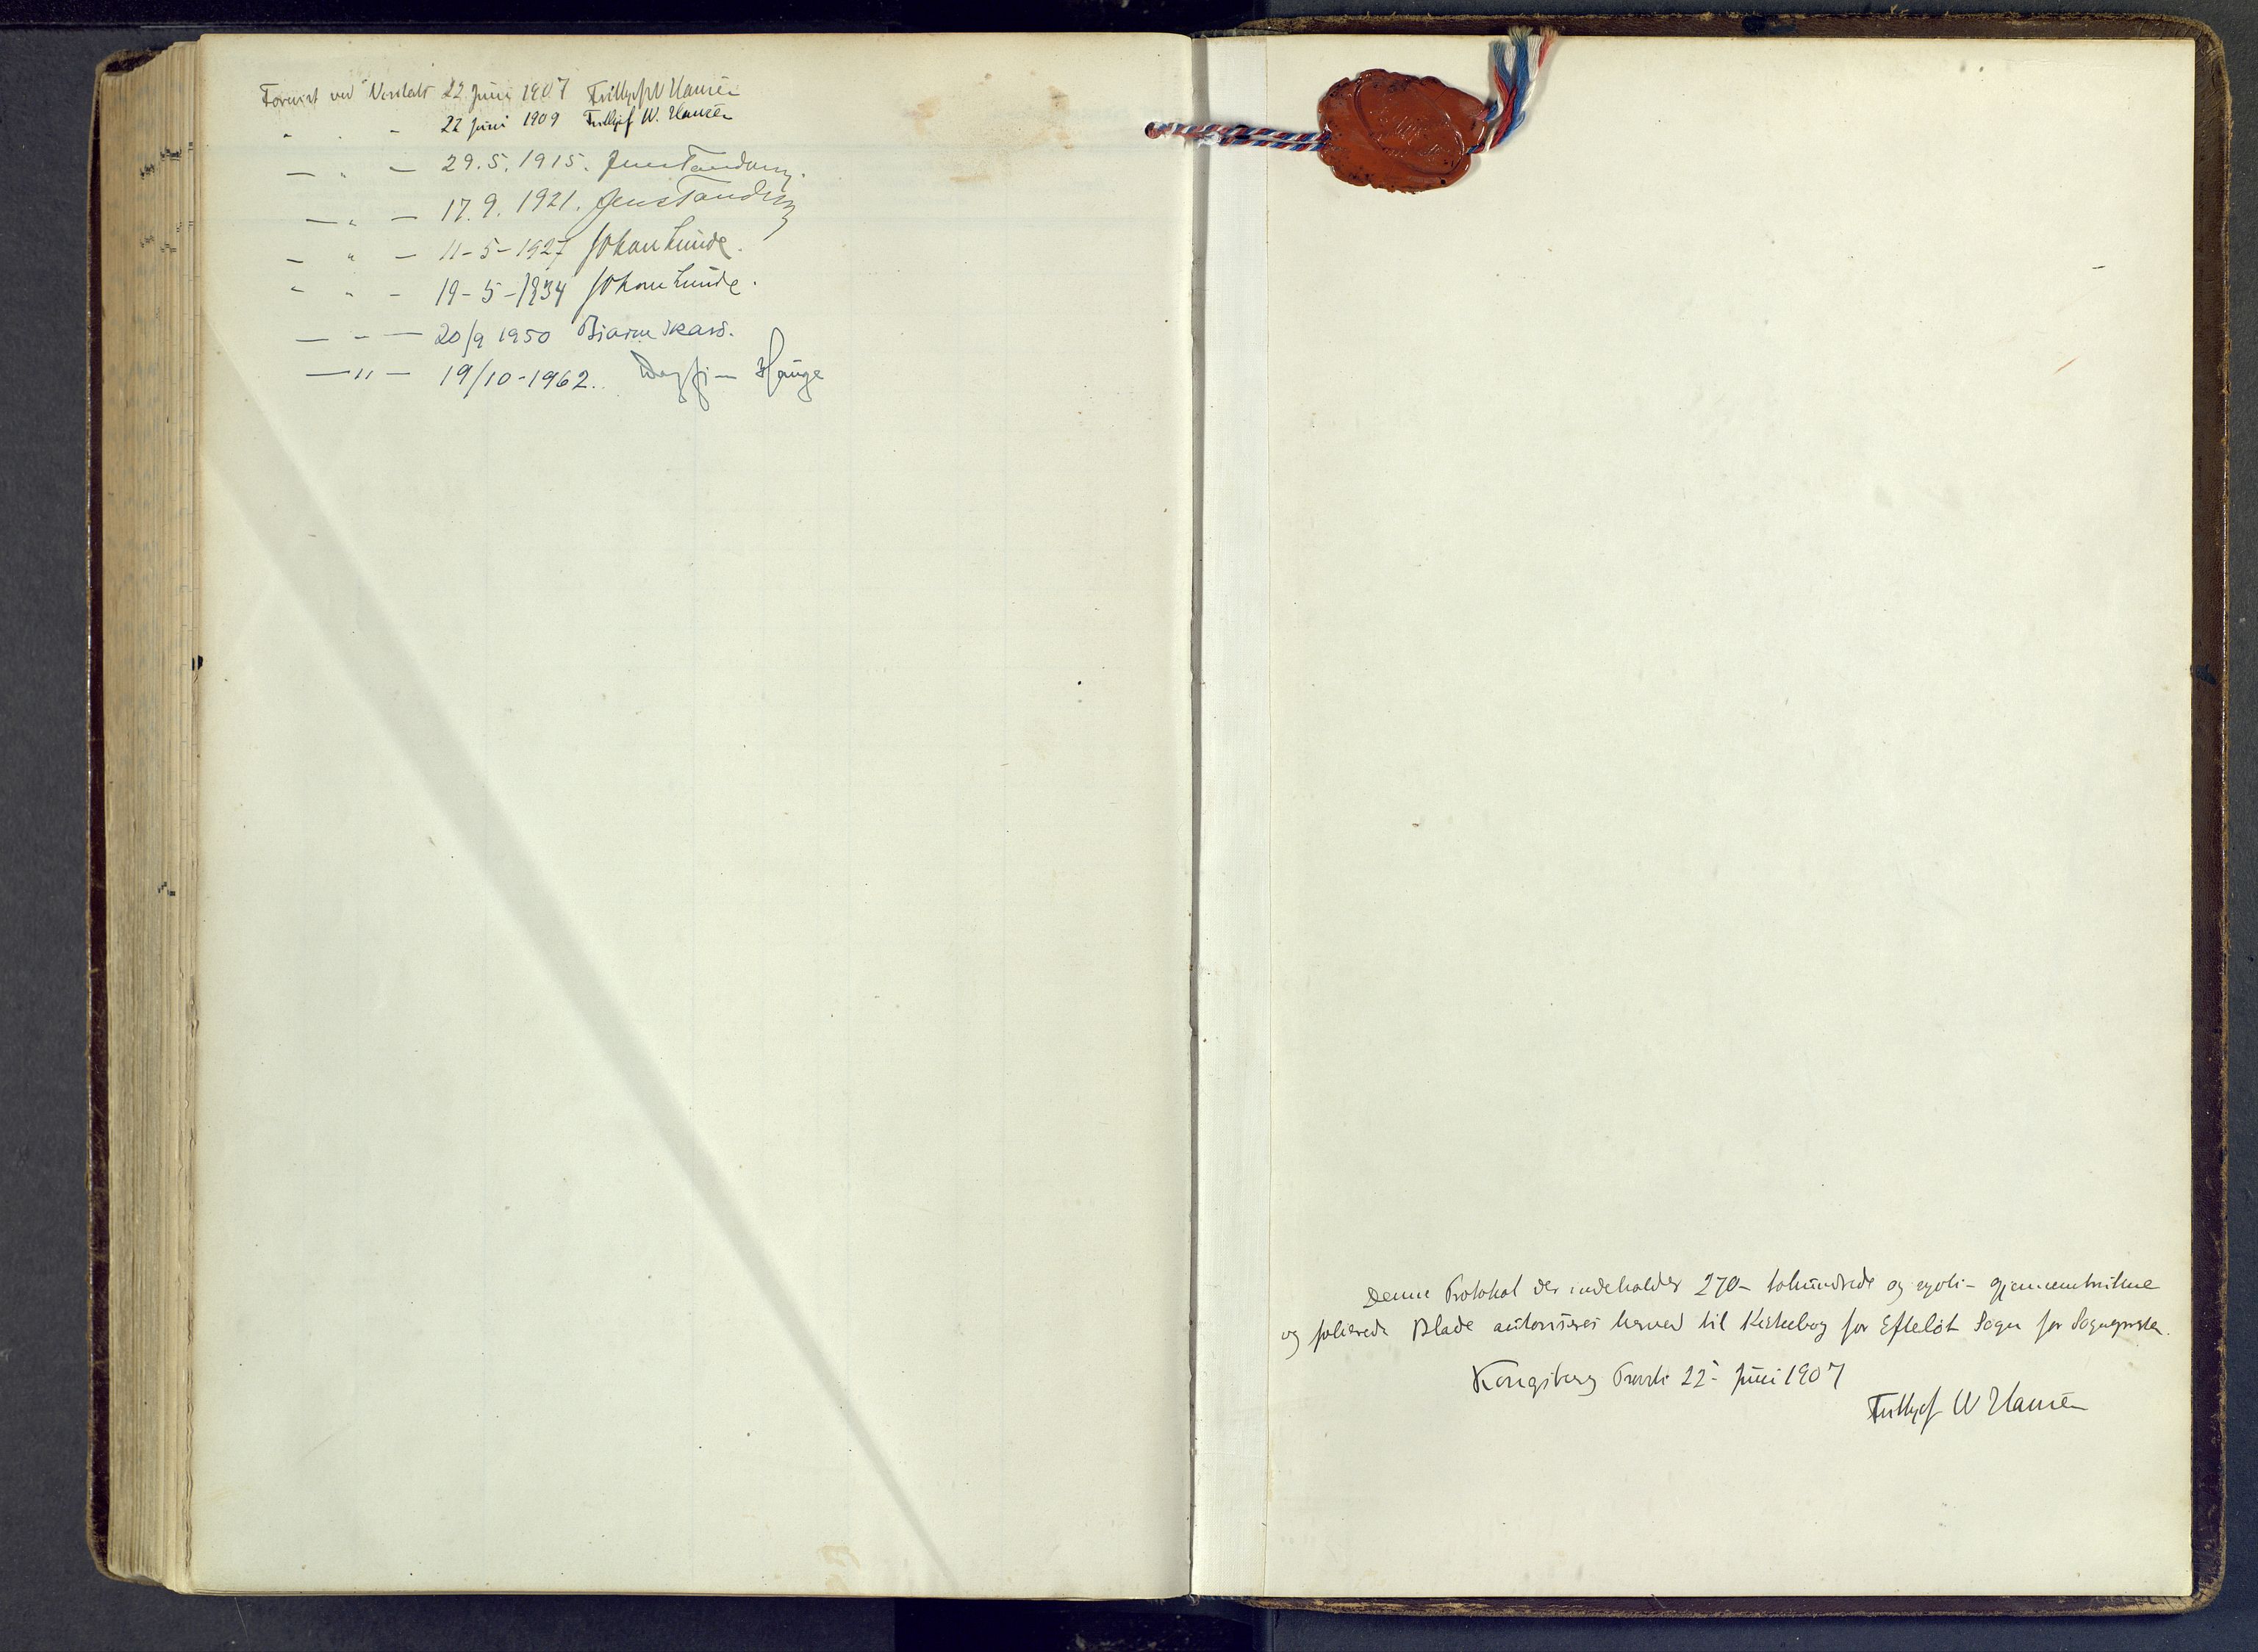 Forevist ved Visitats 22 Juni 1907 Fridtjof W Hansen
" " - 22 Juni 1909 Fridtjof W. Hansen
— " — 29.5.1915. Jens Tandberg.
— " — 17.9.1921. Jens Tandberg
— " — 11-5-1927 Johan Lunde.
" " - 19-5-1934 Johan Lunde.
— " — 20/9 1950 Bjarne Skard.
— " — 19/10-1962. Dagfinn Hauge
Denne Protokol der indeholder 270 - tohundrede og syvti - gjennemtrukne
og folierede Blade autoriseres herved til Kirkebog for Efteløt Sogn for Sognepresten.
Kongsberg Provsti 22 - Juni 1907
Fridtjof W Hansen